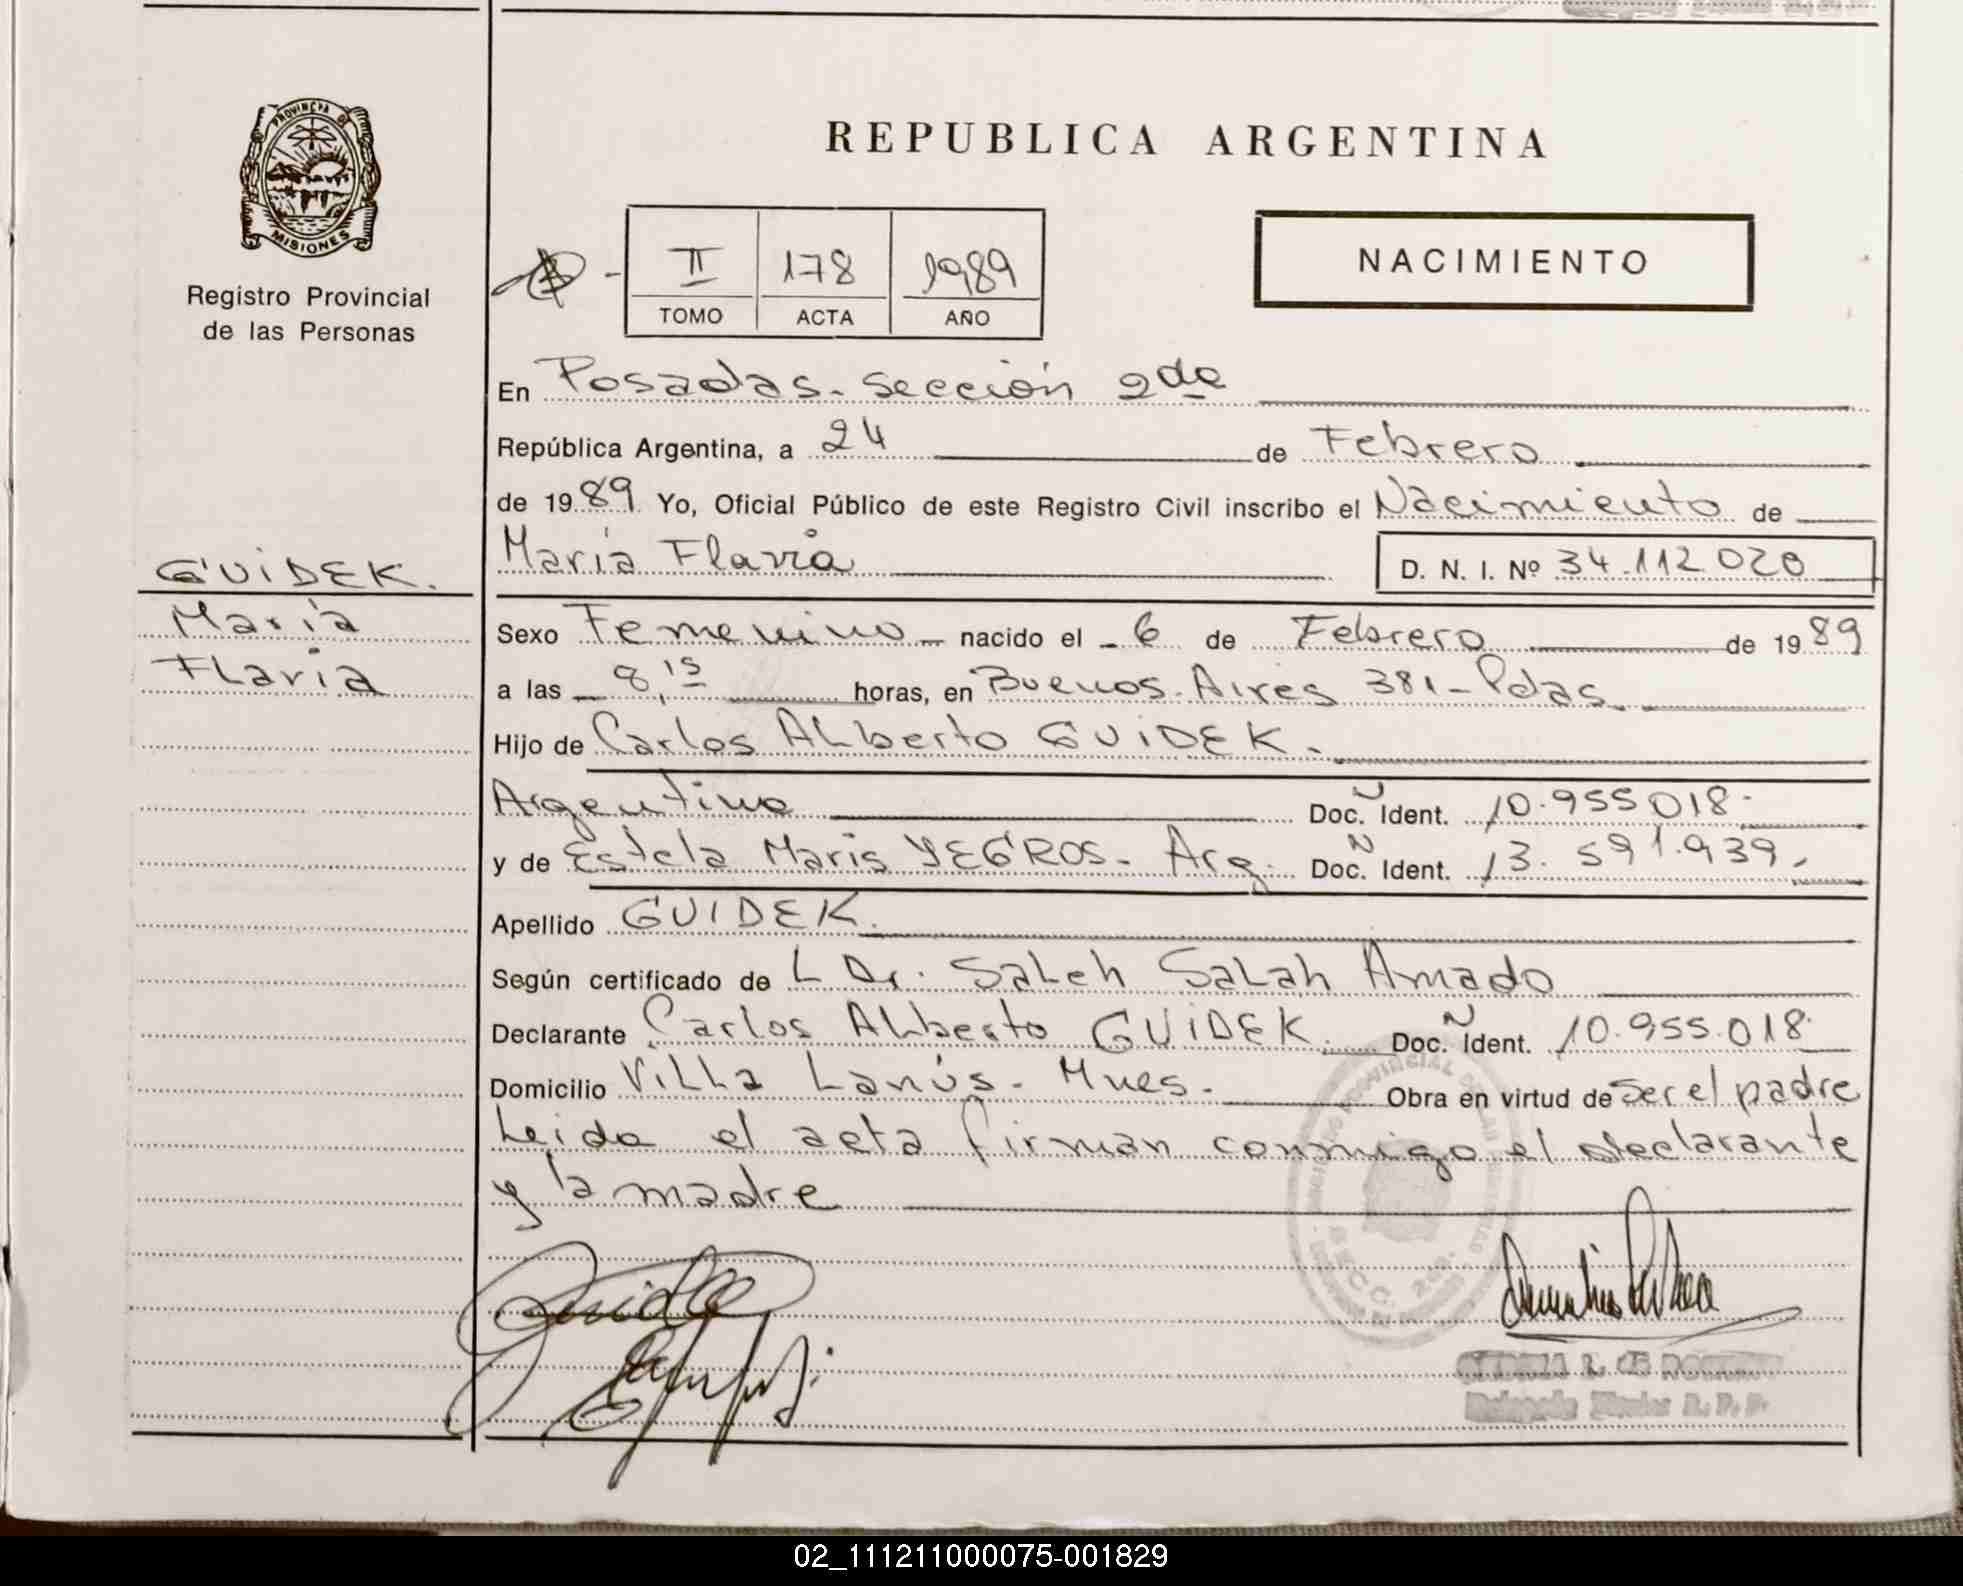 PROVINCIA DE
MISIONES
Registro Provincial
de las Personas
REPUBLICA ARGENTINA
NACIMIENTO
II 178 1989
TOMO ACTA AÑO
En Posadas. sección 2da
República Argentina, a 24 de Febrero
de 1989 Yo, Oficial Público de este Registro Civil inscribo el Nacimiento de
María Flavia D. N. I. Nº 34.112.020
GUIDEK.
María
Flavia
Sexo Femenino nacido el 6 de Febrero de 1989
a las 8,15 horas, en Buenos Aires 381 - Pdas
Hijo de Carlos Alberto GUIDEK.
Argentino Doc. N Ident. 10.955018.
y de Estela Maris YEGROS. Arg. Doc. N Ident. 13.591.939.
Apellido GUIDEK.
Según certificado de L Dr. Saleh Salah Amado
Declarante Carlos Alberto GUIDEK. Doc. N Ident. 10.955.018
Domicilio Villa Lanús. Mnes. Obra en virtud de ser el padre
Leida el acta firman conmigo el declarante
y la madre
SECC. 2da.
02_111211000075-001829